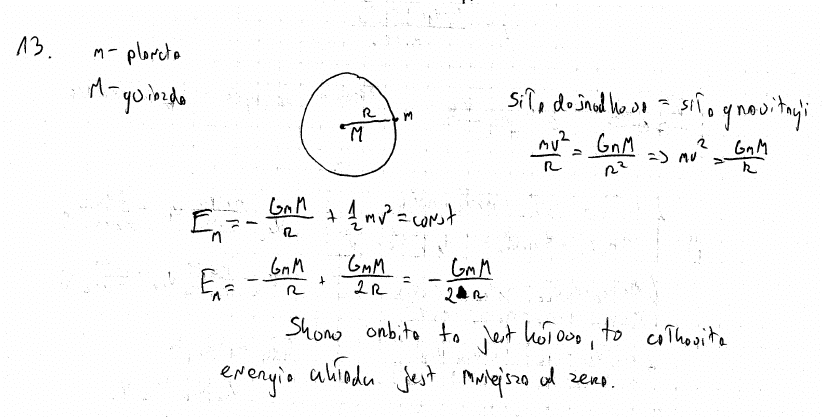 13.
m - planeta
M - gwiazda
R
m
M
siła dośrodkowa = siła grawitacji
mv²/R = GmM/R² => mv² = GmM/R
Eₘ = - GmM/R + 1/2 mv² = const
Eₘ = - GmM/R + GmM/2R = - GmM/2R
Skoro orbita to jest kołowa, to całkowita
energia układu jest mniejsza od zera.